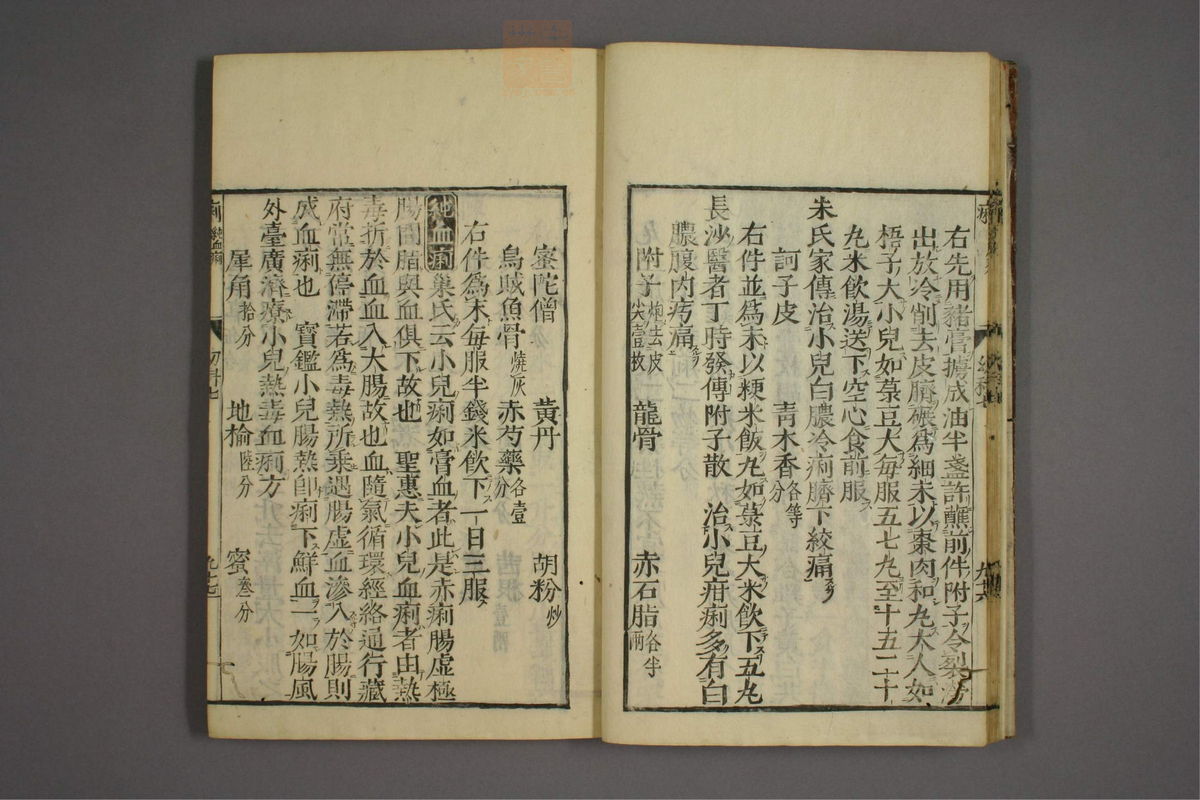 右先用豬膏擣成油半盞許蘸前件附子令裂
出放冷削去皮臍碾爲細末以棗肉和丸大人如
梧子大小兒如菉豆大每服五七丸至十五二十
丸米飲湯送下空心食前服
朱氏家傳治小兒白膿冷痢臍下絞痛
訶子皮 青木香各等分
右件並爲末以粳米飯丸如菉豆大米飲下五丸
長沙醫者丁時發傳附子散 治小兒疳痢多有白
膿腹內疞痛
附子炮去皮尖壹枚 龍骨 赤石脂各半兩
密陀僧 黃丹 胡粉炒
烏賊魚骨燒灰 赤芍藥各壹分
右件爲末每服半錢米飲下一日三服
純血痢 巢氏云小兒痢如膏血者此是赤痢腸虛極
腸間脂與血俱下故也 聖惠夫小兒血痢者由熱
毒折於血血入大腸故也血隨氣循環經絡通行藏
府常無停滯若爲毒熱所乘遇腸虛血滲入於腸則
成血痢也 寶鑑小兒腸熱卽痢下鮮血一如腸風
外臺廣濟療小兒熱毒血痢方
犀角拾分 地榆陸分 蜜叁分
痢 純血痢 幼科七 九十七